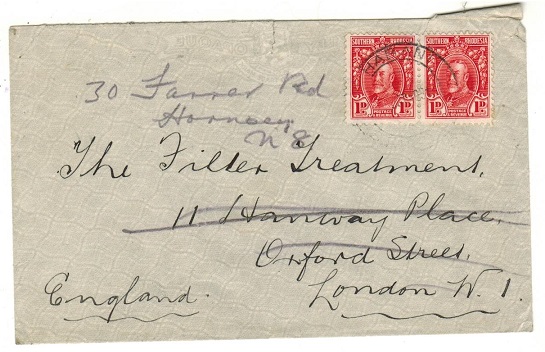 SOUTHERN RHODESIA SOUTHERN RHODESIA
1D POSTAGE & REVENUE 1D 1D POSTAGE & REVENUE 1D
30 Farrer Rd
Hornsey
N 8
The Filter Treatment,
11 Hanway Place,
Oxford Street,
England. London W. 1.